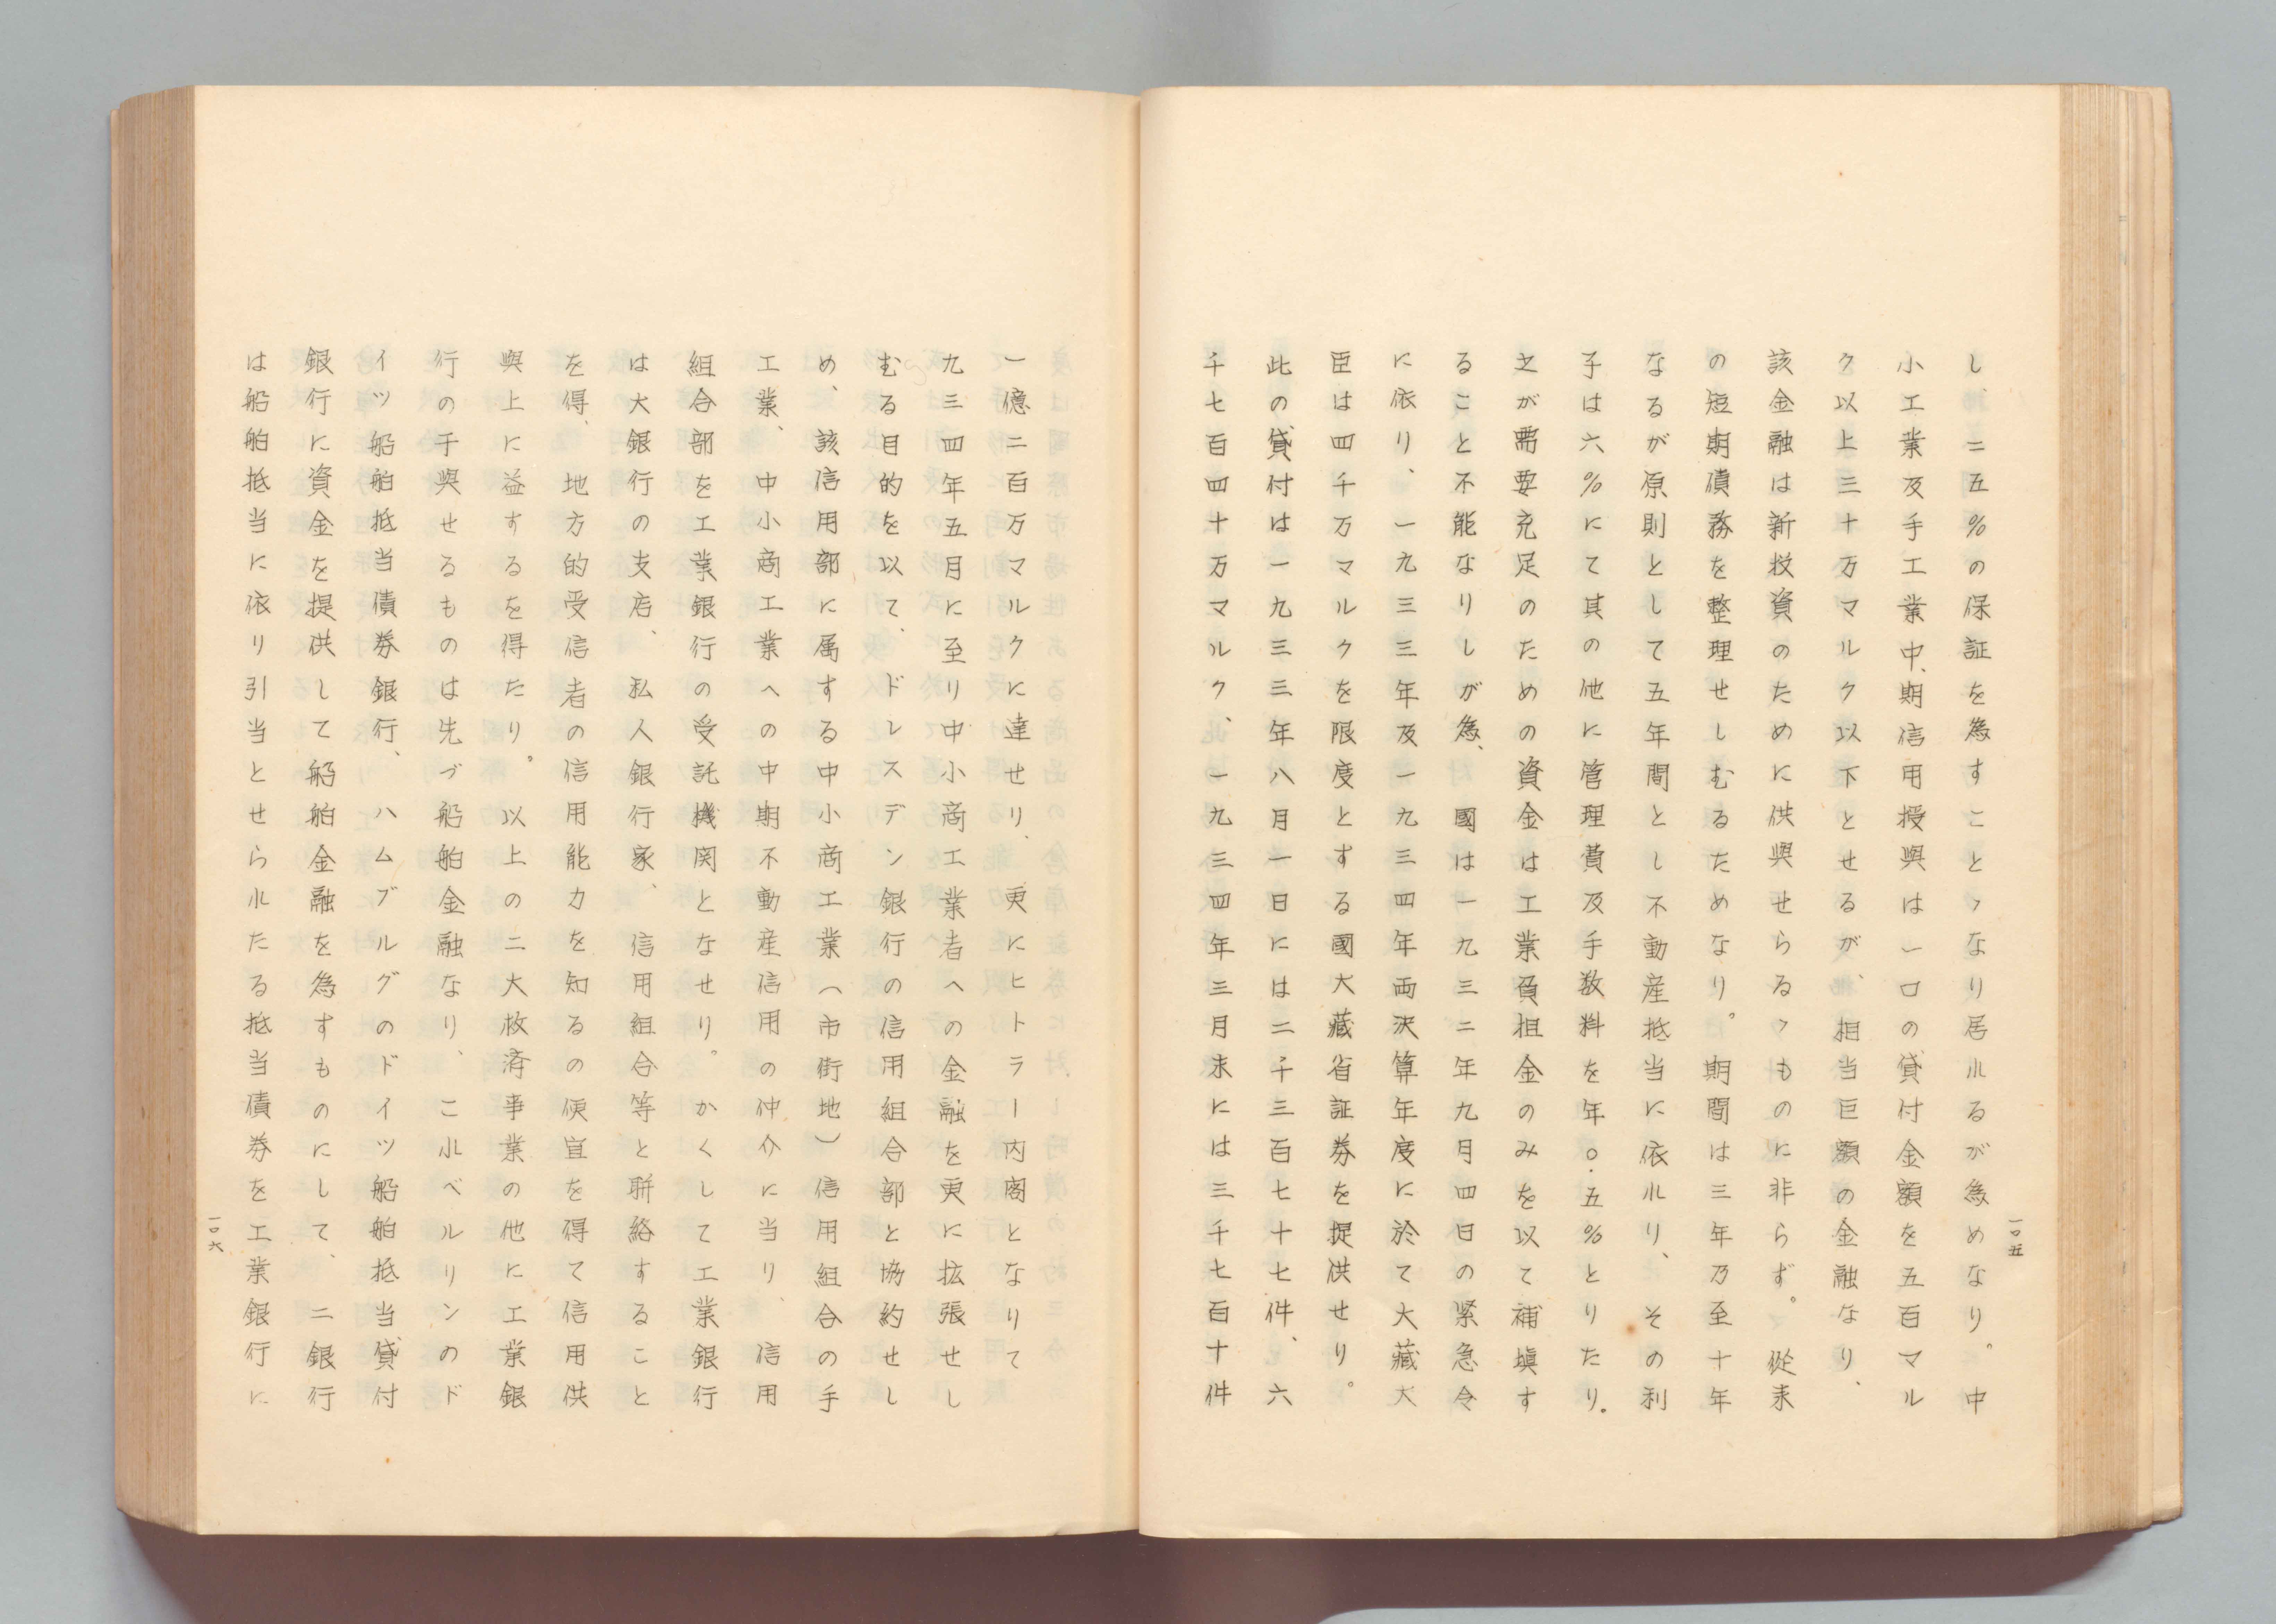 し、二五％の保証を為すことゝなり居れるが為めなり。中
小工業及手工業中、期信用授與は一口の貸付金額を五百マル
ク以上三十万マルク以下とせるが、相当巨額の金融なり、
該金融は新投資のために供與せらるゝものに非らず。從来
の短期債務を整理せしむるためなり。期間は三年乃至十年
なるが原則として五年間とし不動産抵当に依れり、その利
子は六％にて其の他に管理費及手数料を年〇．五％とりたり。
之が需要充足のための資金は工業負担金のみを以て補塡す
ること不能なりしが為、國は一九三二年九月四日の緊急令
に依り、一九三三年及一九三四年両決算年度に於て大藏大
臣は四千万マルクを限度とする國大藏省証券を提供せり。
此の貸付は一九三三年八月一日には二千三百七十七件、六
千七百四十万マルク、一九三四年三月末には三千七百十件
一〇五
一億二百万マルクに達せり、更にヒトラー内閣となりて
九三四年五月に至り中小商工業者への金融を更に拡張せし
むる目的を以て、ドレスデン銀行の信用組合部と協約せし
め、該信用部に属する中小商工業（市街地）信用組合の手
工業、中小商工業への中期不動産信用の仲介に当り、信用
組合部を工業銀行の受託機関となせり。かくして工業銀行
は大銀行の支店、私人銀行家、信用組合等と聯絡すること
を得、地方的受信者の信用能力を知るの便宜を得て信用供
與上に益するを得たり。以上の二大救済事業の他に工業銀
行の干與せるものは先づ船舶金融なり、これベルリンのド
イツ船舶抵当債券銀行、ハムブルグのドイツ船舶抵当貸付
銀行に資金を提供して船舶金融を為すものにして、二銀行
は船舶抵当に依り引当とせられたる抵当債券を工業銀行に
一〇六